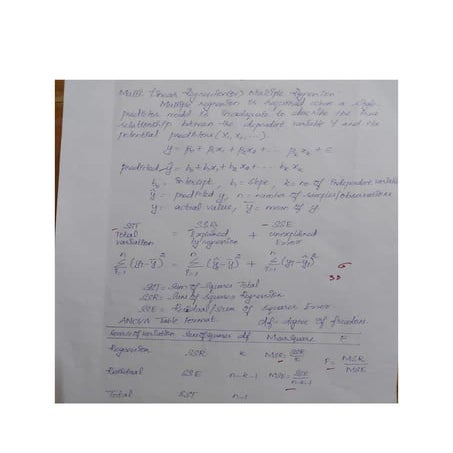 Multi Linear Regression (or) Multiple Regression:
Multiple regression is required when a single
predictor model is inadequate to describe the true
relationship between the dependent variable Y and the
potential predictors (X₁, X₂, ...)
y = β₀ + β₁x₁ + β₂x₂ + ... βₖxₖ + ε
predicted ŷ = b₀ + b₁x₁ + b₂x₂ + ... bₖxₖ
b₀ = Intercept, b₁ = Slope, k = no of Independent variables
ŷ = predicted y, n = number of samples/observations
y = actual value, ȳ = mean of y
SST SSR - SSE
Total variation = Explained by regression + unexplained Error
Σ (yᵢ - ȳ)² = Σ (ŷᵢ - ȳ)² + Σ (yᵢ - ŷᵢ)²
33
SST = Sum of Squares Total
SSR = Sum of Squares Regression
SSE = Residual/Sum of Squares Error
ANOVA Table Format: df = degree of freedom
Source of Variation Sum of Squares df Mean Square F
Regression SSR k MSR = SSR/k F = MSR/MSE
Residual SSE n-k-1 MSE = SSE/n-k-1
Total SST n-1